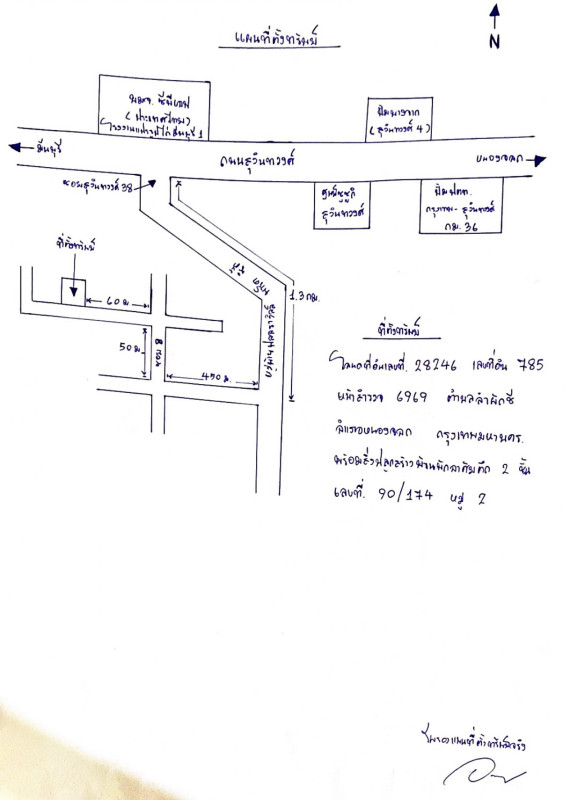 แผนที่ตั้งทรัพย์
N
บมจ. ซีพีเอฟ
(ประเทศไทย)
โรงงานแปรรูปไก่ มีนบุรี 1
ปั๊มบางจาก
(สุวินทวงศ์ 4)
มีนบุรี
ถนนสุวินทวงศ์
หนองจอก
ซอยสุวินทวงศ์ 38
ศูนย์ซูซูกิ
สุวินทวงศ์
ปั๊มปตท.
กรุงเทพ- สุวินทวงศ์
กม. 36
ที่ตั้งทรัพย์
60 ม
1.3 กม.
50 ม
ซอย 8
450 ม.
ที่ตั้งทรัพย์
โฉนดที่ดินเลขที่ 28246 เลขที่ดิน 785
หน้าสำรวจ 6969 ตำบลลำผักชี
อำเภอหนองจอก กรุงเทพมหานคร.
พร้อมสิ่งปลูกสร้างบ้านพักอาศัยตึก 2 ชั้น
เลขที่. 90/174 หมู่ 2